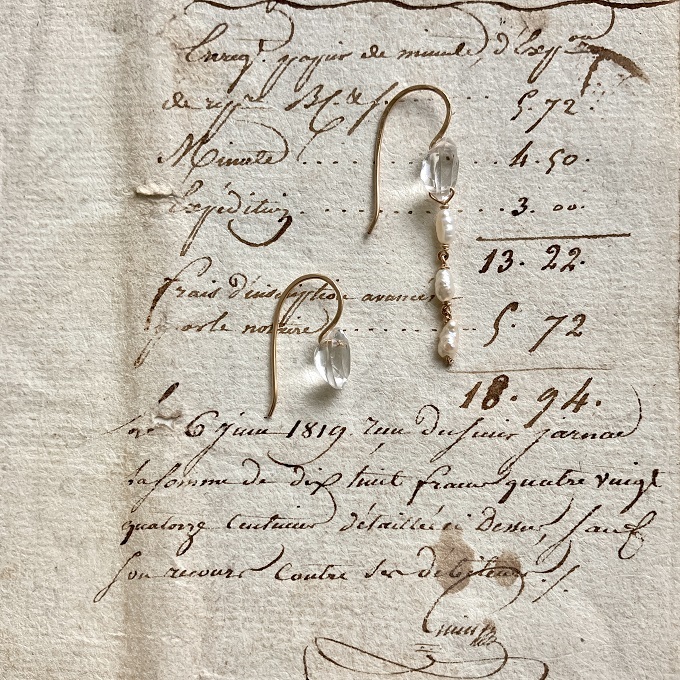 Enreg.t papier de minute, d'Exp.on
de rep.re 5.72
Minute 4.50.
Expédition 3.00.
13.22.
frais d'inscription avancés
notaire 5.72
18.94.
6 juin 1819. jarnac
la somme de dix huit francs quatre vingt
quatorze Centimes détaillée ci Dessus, sauf
son recours Contre ses débiteurs ./.